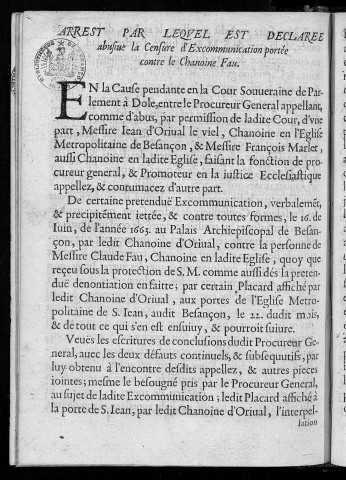 ARREST PAR LEQVEL EST DECLAREE
abusiue la Censure d'Excommunication portée
contre le Chanoine Fau.
EN la Cause pendante en la Cour Souueraine de Par-
lement à Dole, entre le Procureur General appellant,
comme d'abus, par permission de ladite Cour, d'vne
part, Messire Iean d'Oriual le viel, Chanoine en l'Eglise
Metropolitaine de Besançon, & Messire François Marlet,
aussi Chanoine en ladite Eglise, faisant la fonction de pro-
cureur general, & Promoteur en la iustice Ecclesiastique
appellez, & contumacez d'autre part.
De certaine pretenduë Excommunication, verbalemét,
& precipitément iettée, & contre toutes formes, le 16. de
Iuin, de l'année 1663. au Palais Archiepiscopal de Besan-
çon, par ledit Chanoine d'Oriual, contre la personne de
Messire Claude Fau, Chanoine en ladite Eglise, quoy que
reçeu sous la protection de S.M. comme aussi dés la preten-
duë denontiation en faite; par certain Placard affiché par
ledit Chanoine d'Oriual, aux portes de l'Eglise Metro-
politaine de S. Iean, audit Besançon, le 22. dudit mais,
& de tout ce qui s'en est ensuiuy, & pourroit suiure.
Veuës les escritures de conclusions dudit Procureur Ge-
neral, auec les deux défauts continuels, & subsequutifs, par
luy obtenu à l'encontre desdits appellez, & autres pieces
iointes; mesme le besougné pris par le Procureur General,
au sujet de ladite Excommunication; ledit Placard affiché à
la porte de S. Iean, par ledit Chanoine d'Oriual, l'interpel-
lation